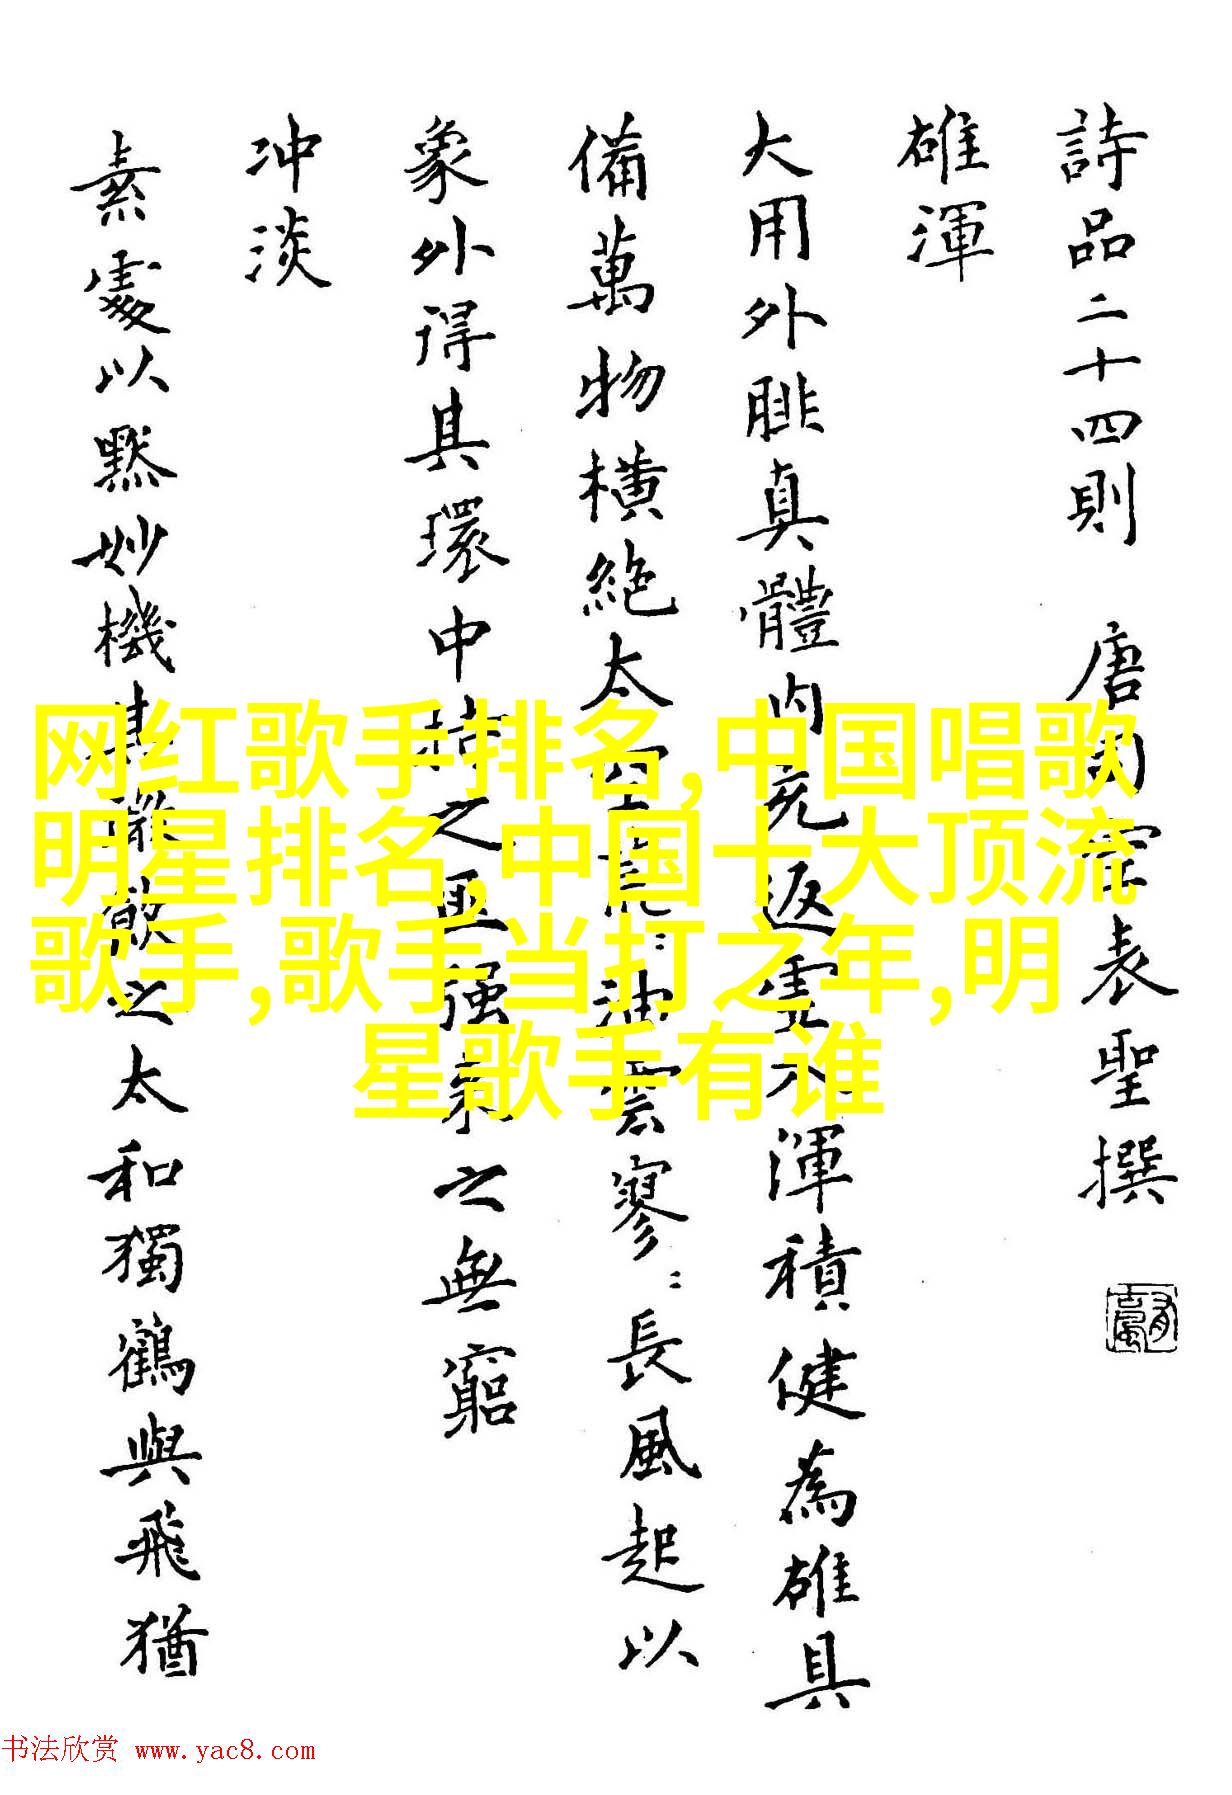 詩品二十四則 唐司空表聖撰
雄渾
大用外腓真體内充返虛入渾積健為雄具
備萬物橫絶太空荒〻油雲寥〻長風超以
象外得其環中持之匪强來之無窮
冲淡
素處以默妙機其微飲之太和獨鶴與飛猶
网红歌手排名,中国唱歌
明星排名,中国十大顶流
歌手,歌手当打之年,明
星歌手有谁
书法欣赏 www.yac8.com